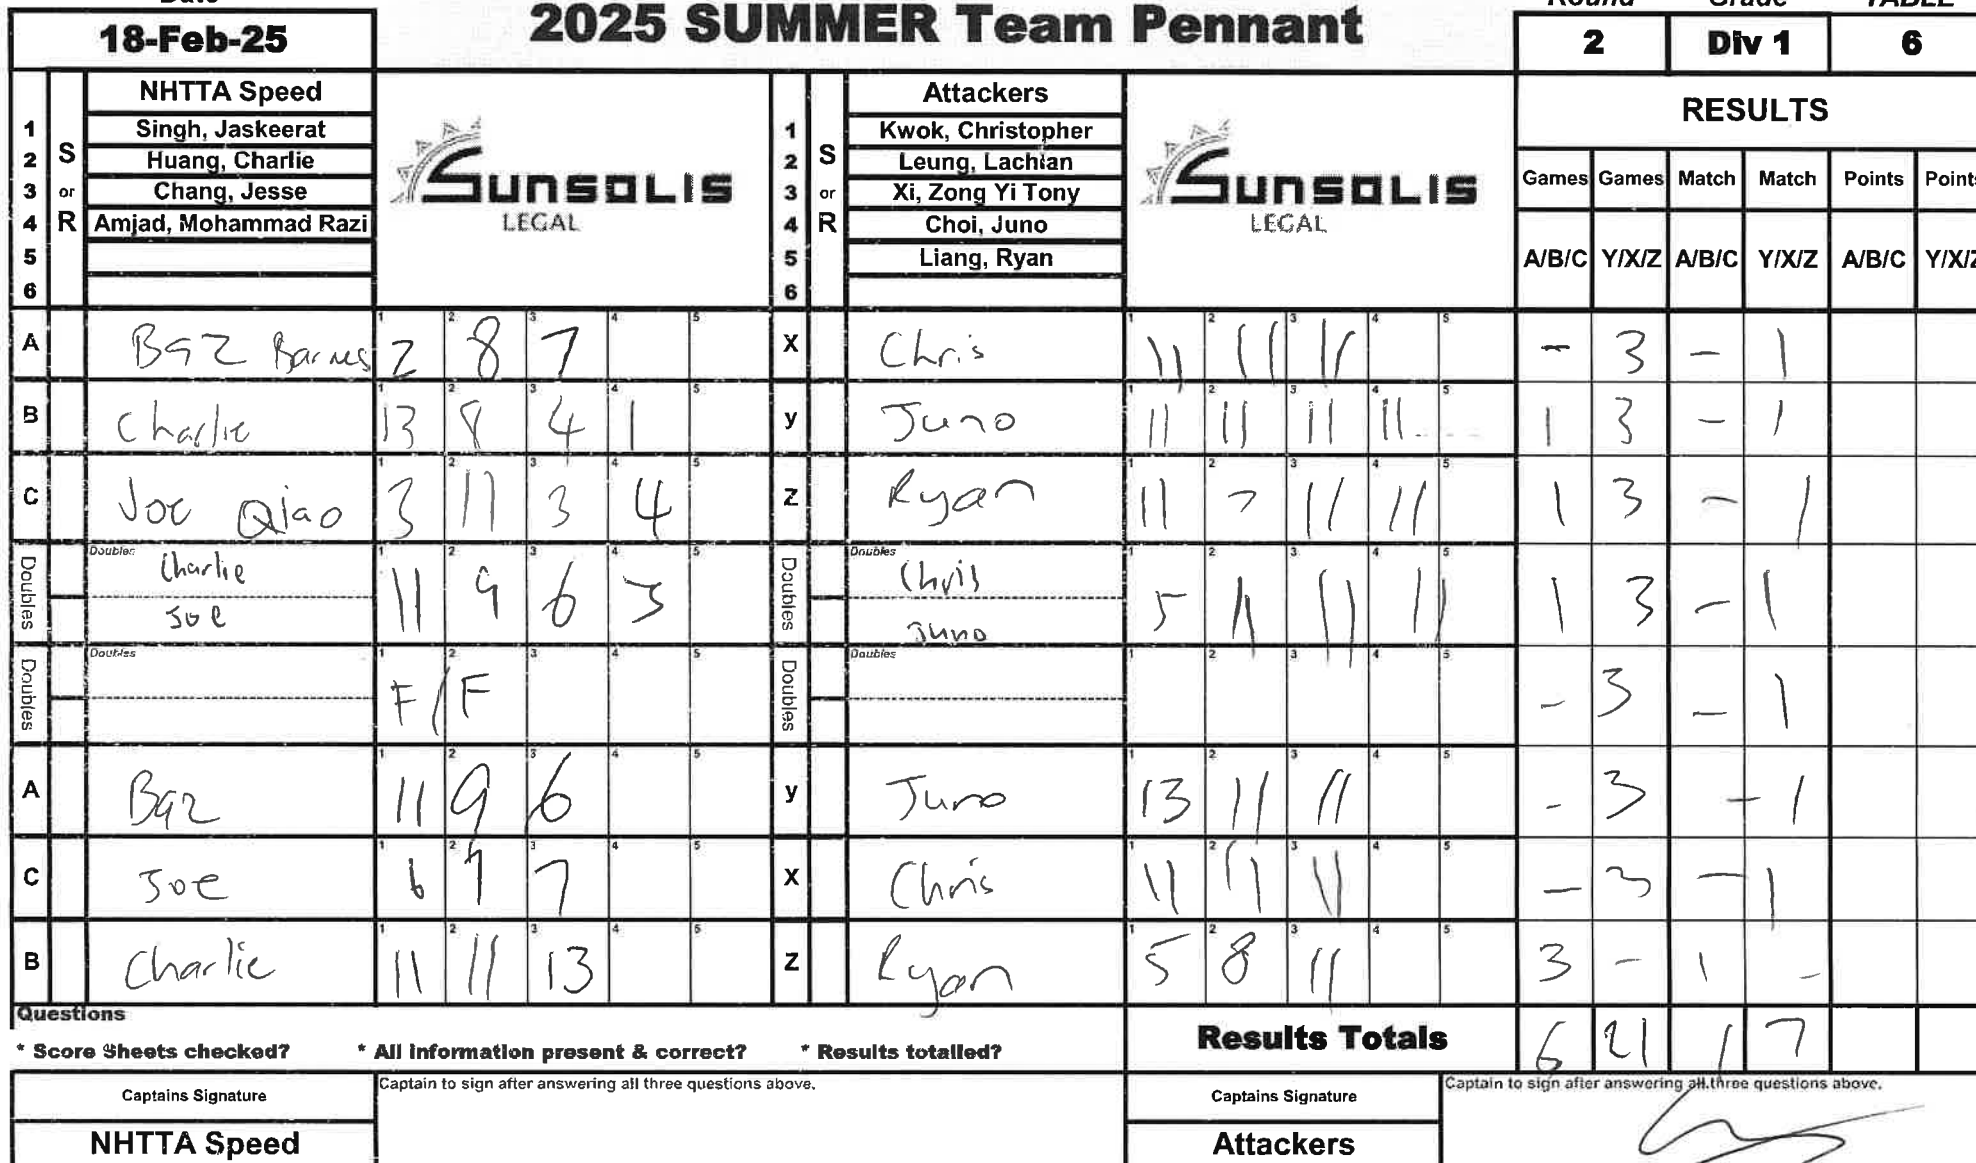 Date
18-Feb-25
2025 SUMMER Team Pennant
Round Grade TABLE
2 Div 1 6
NHTTA Speed
1 Singh, Jaskeerat
2 Huang, Charlie
3 Chang, Jesse
4 Amjad, Mohammad Razi
5
6
S or R
SUNSOLIS
LEGAL
Attackers
1 Kwok, Christopher
2 Leung, Lachlan
3 Xi, Zong Yi Tony
4 Choi, Juno
5 Liang, Ryan
6
S or R
SUNSOLIS
LEGAL
RESULTS
Games Games Match Match Points Points
A/B/C Y/X/Z A/B/C Y/X/Z A/B/C Y/X/Z
A Baz Barnes 2 8 7 X Chris 11 11 11 - 3 - 1
B Charlie 13 8 4 1 y Juno 11 11 11 11 1 3 - 1
C Joe Qiao 3 11 3 4 Z Ryan 11 7 11 11 1 3 - 1
Doubles Doubles Charlie Joe 11 9 6 3 Doubles Doubles Chris Juno 5 11 11 11 1 3 - 1
Doubles Doubles F/F Doubles Doubles - 3 - 1
A Baz 11 9 6 y Juno 13 11 11 - 3 - 1
C Joe 6 9 7 X Chris 11 11 11 - 3 - 1
B Charlie 11 11 13 Z Ryan 5 8 11 3 - 1 -
Questions
* Score Sheets checked? * All information present & correct? * Results totalled?
Results Totals 6 21 1 7
Captains Signature
Captain to sign after answering all three questions above.
Captains Signature
Captain to sign after answering all three questions above.
NHTTA Speed
Attackers